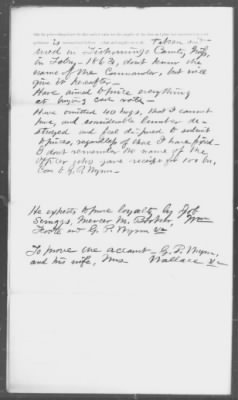 is taken and
used in Tishomingo County, Miss,
in Feby - 1863, dont know the
name of the Commander, but will
give it hereafter.
Have aimed to price everything
at buying cash rates -
Have omitted 40 hogs, that I cannot
prove, and considerable lumber de-
stroyed and feel disposed to submit
to prices, regardless of what I have fixed -
I dont remember the name of the
officer who gave receipt for 100 bu,
Corn to G. P. Wynn -
He expects to prove loyalty by Job
Scruggs, Mercer M. Wm
Foote and G. P. Wynn &c
To prove the account - G. P. Wynn,
and his wife, Mrs Wallace &c